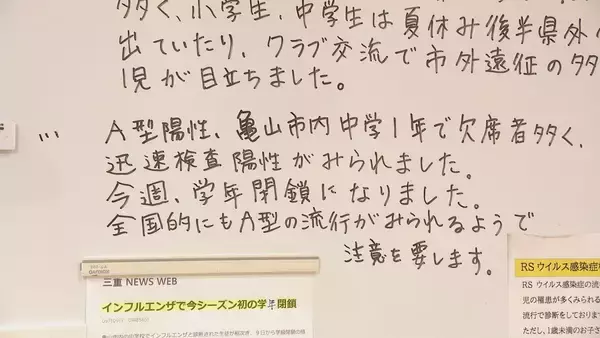 多く、小学生、中学生は夏休み後半県外へ
出ていたり、クラブ交流で市外遠征の多
い児が目立ちました。
A型陽性、亀山市内中学1年で欠席者多く、
迅速検査陽性がみられました。
今週、学年閉鎖になりました。
全国的にもA型の流行がみられるようで
注意を要します。
三重 NEWS WEB
インフルエンザで今シーズン初の学年閉鎖
RSウイルス感染症
RSウイルス感染症の流
児の罹患が多くみられる
流行で診断をしております
ただし、1歳未満のお子さ